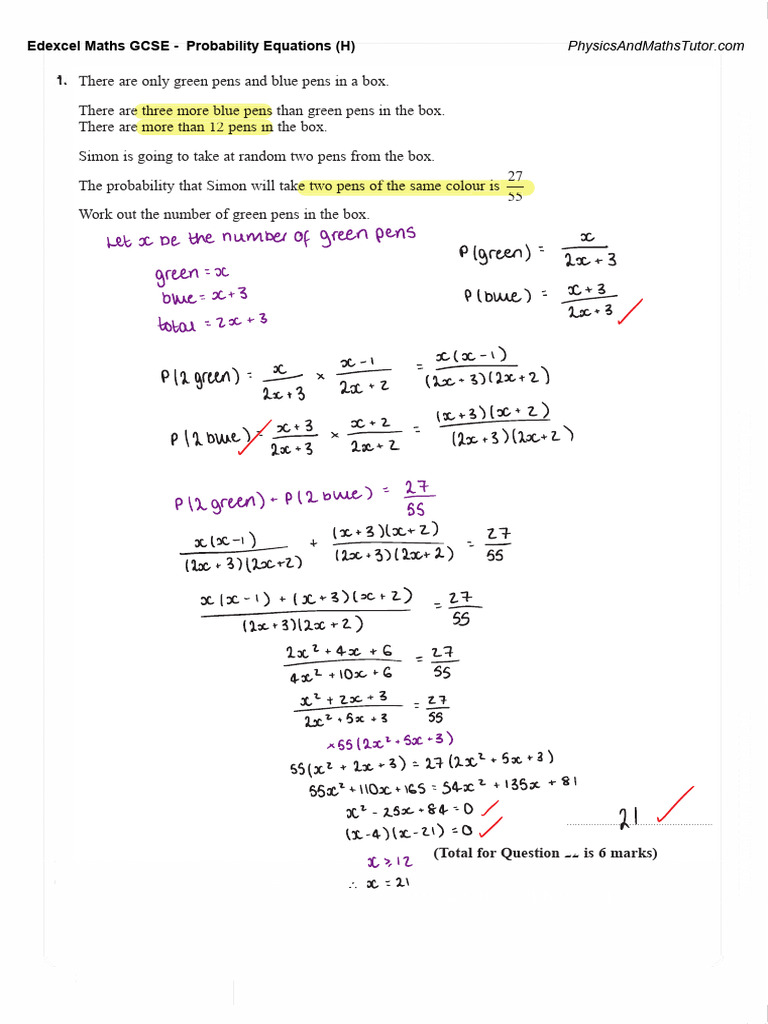 Edexcel Maths GCSE - Probability Equations (H) PhysicsAndMathsTutor.com
1. There are only green pens and blue pens in a box.
There are three more blue pens than green pens in the box.
There are more than 12 pens in the box.
Simon is going to take at random two pens from the box.
The probability that Simon will take two pens of the same colour is 27/55
Work out the number of green pens in the box.
Let x be the number of green pens
green = x
blue = x+3
total = 2x + 3
P(green) = x/(2x + 3)
P(blue) = (x + 3)/(2x + 3)
P(2 green) = x/(2x + 3) × (x - 1)/(2x + 2) = x(x - 1)/((2x + 3)(2x + 2))
P(2 blue) = (x + 3)/(2x + 3) × (x + 2)/(2x + 2) = (x + 3)(x + 2)/((2x + 3)(2x + 2))
P(2 green) + P(2 blue) = 27/55
x(x - 1)/((2x + 3)(2x + 2)) + (x + 3)(x + 2)/((2x + 3)(2x + 2)) = 27/55
(x(x - 1) + (x + 3)(x + 2))/((2x + 3)(2x + 2)) = 27/55
(2x² + 4x + 6)/(4x² + 10x + 6) = 27/55
(x² + 2x + 3)/(2x² + 5x + 3) = 27/55
×55(2x² + 5x + 3)
55(x² + 2x + 3) = 27(2x² + 5x + 3)
55x² + 110x + 165 = 54x² + 135x + 81
x² - 25x + 84 = 0
(x - 4)(x - 21) = 0
21
(Total for Question is 6 marks)
x ≥ 12
∴ x = 21